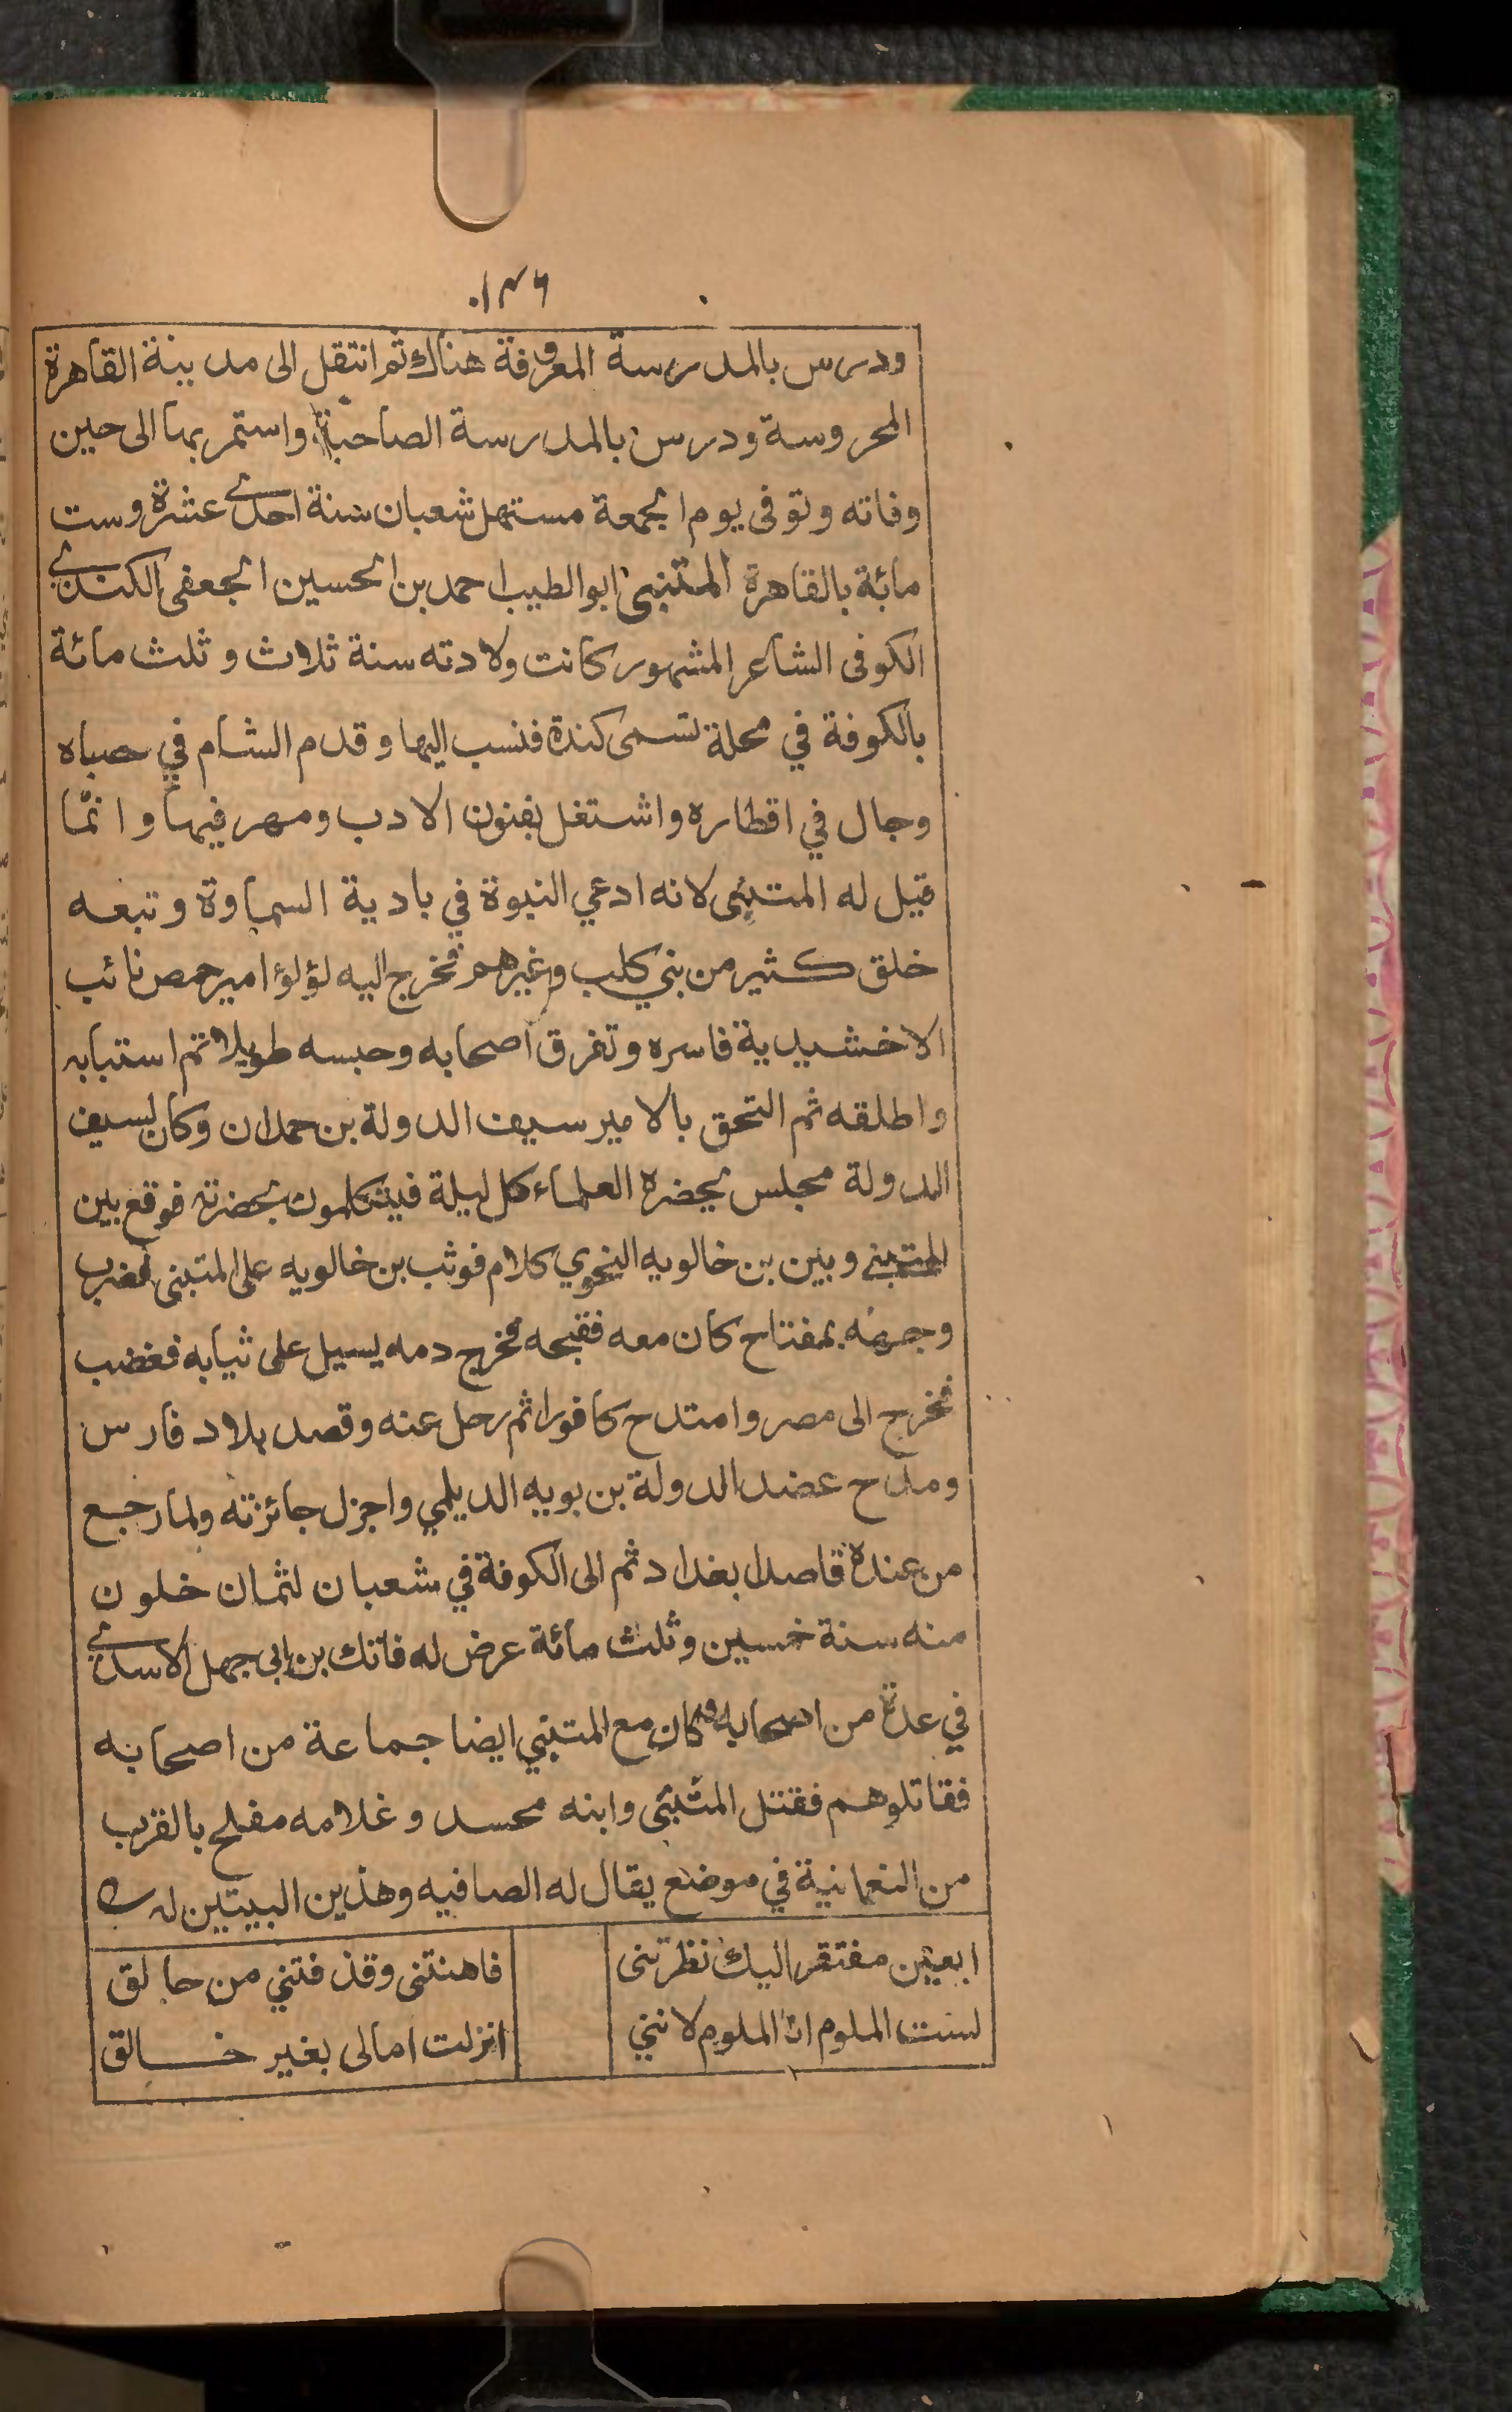 ١٣٦
ودرس بالمدرسة المعروفة هناك ثم انتقل الى مدينة القاهرة
المحروسة ودرس بالمدرسة الصاحبية واستمر بها الى حين
وفاته وتوفى يوم الجمعة مستهل شعبان سنة احدى عشرة وست
مائة بالقاهرة المتنبى ابو الطيب احمد بن الحسين الجعفى الكندى
الكوفى الشاعر المشهور كانت ولادته سنة ثلاث و ثلث مائة
بالكوفة في محلة تسمى كندة فنسب اليها وقدم الشام في صباه
وجال في اقطاره واشتغل بفنون الادب ومهر فيها وانما
قيل له المتنبى لانه ادعي النبوة في بادية السماوة وتبعه
خلق كثير من بني كلب وغيرهم فخرج اليه لؤلؤ امير حمص نائب
الاخشيدية فاسره وتفرق اصحابه وحبسه طويلا ثم استتابه
واطلقه ثم التحق بالامير سيف الدولة بن حمدان وكان لسيف
الدولة مجلس يحضره العلماء كل ليلة فيتكلمون بحضرته فوقع بين
المتنبي وبين بن خالويه النحوي كلام فوثب بن خالويه على المتنبى فضرب
وجهه بمفتاح كان معه فقبحه فخرج دمه يسيل على ثيابه فغضب
فخرج الى مصر وامتدح كافورا ثم رحل عنه وقصد بلاد فارس
ومدح عضد الدولة بن بويه الديلمي واجزل جائزته ولما رجع
من عنده قاصدا بغداد ثم الى الكوفة في شعبان لثمان خلون
منه سنة خمسين وثلث مائة عرض له فاتك بن ابى جهل الاسدى
في عدة من اصحابه وكان مع المتنبي ايضا جماعة من اصحابه
فقاتلوهم فقتل المتنبى وابنه محسد وغلامه مفلح بالقرب
من النعمانية في موضع يقال له الصافيه وهذين البيتين له
ابعين مفتقر اليك نظرتنى فاهنتنى وقذفتني من حالق
لست الملوم انا الملوم لانني انزلت امالى بغير خالق